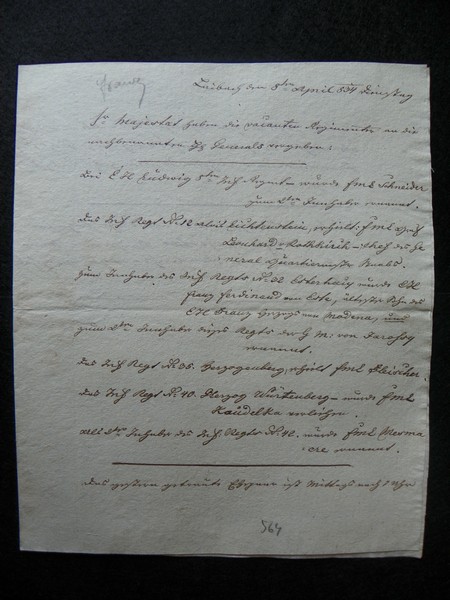 Laibach den 8ten April 834 Dienstag
Sr Majestät haben die vacanten Regimenter an die
nachbenannten Generals vergeben:
Bei EH Ludwig 8ten Inf Regmt wurde fmL Schneider
zum 2ten Inhaber ernannt.
Das Inf Regt No. 12 Liechtenstein, erhielt: fmL Graf
Rothkirch Chef des Ge
neral Quartiermstr Staabs.
Zum Inhaber des Inf Regts No. 32 Esterhazy wurde EH
Franz Ferdinand von Este, ältester Sohn des
EH Franz Herzogs von Modena, und
zum 2ten Inhaber dieses Regts der G M: von
ernannt.
Das Inf Regt No. 35. Herzogenberg, erhielt fmL Fleischer.
Das Inf Regt No. 40. Herzog Würtenberg wurde fmL
Kaudelka verliehen.
als 2ter Inhaber des Inf: Regts No. 42. wurde fmL Mesma
cre ernannt.
Das gestern getraute Ehepaar ist Mittags nach 1 Uhr
564